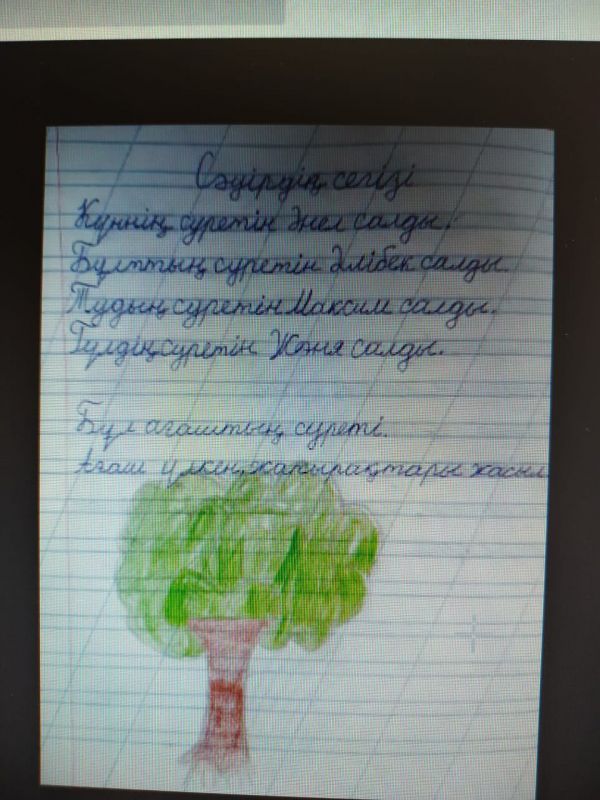 Сәуірдің сегізі
Күннің суретін Әнел салды.
Бұлттың суретін Әлібек салды.
Тудың суретін Максим салды.
Гүлдің суретін Жәня салды.
Бұл ағаштың суреті.
Ағаш үлкен, жапырақтары жасыл